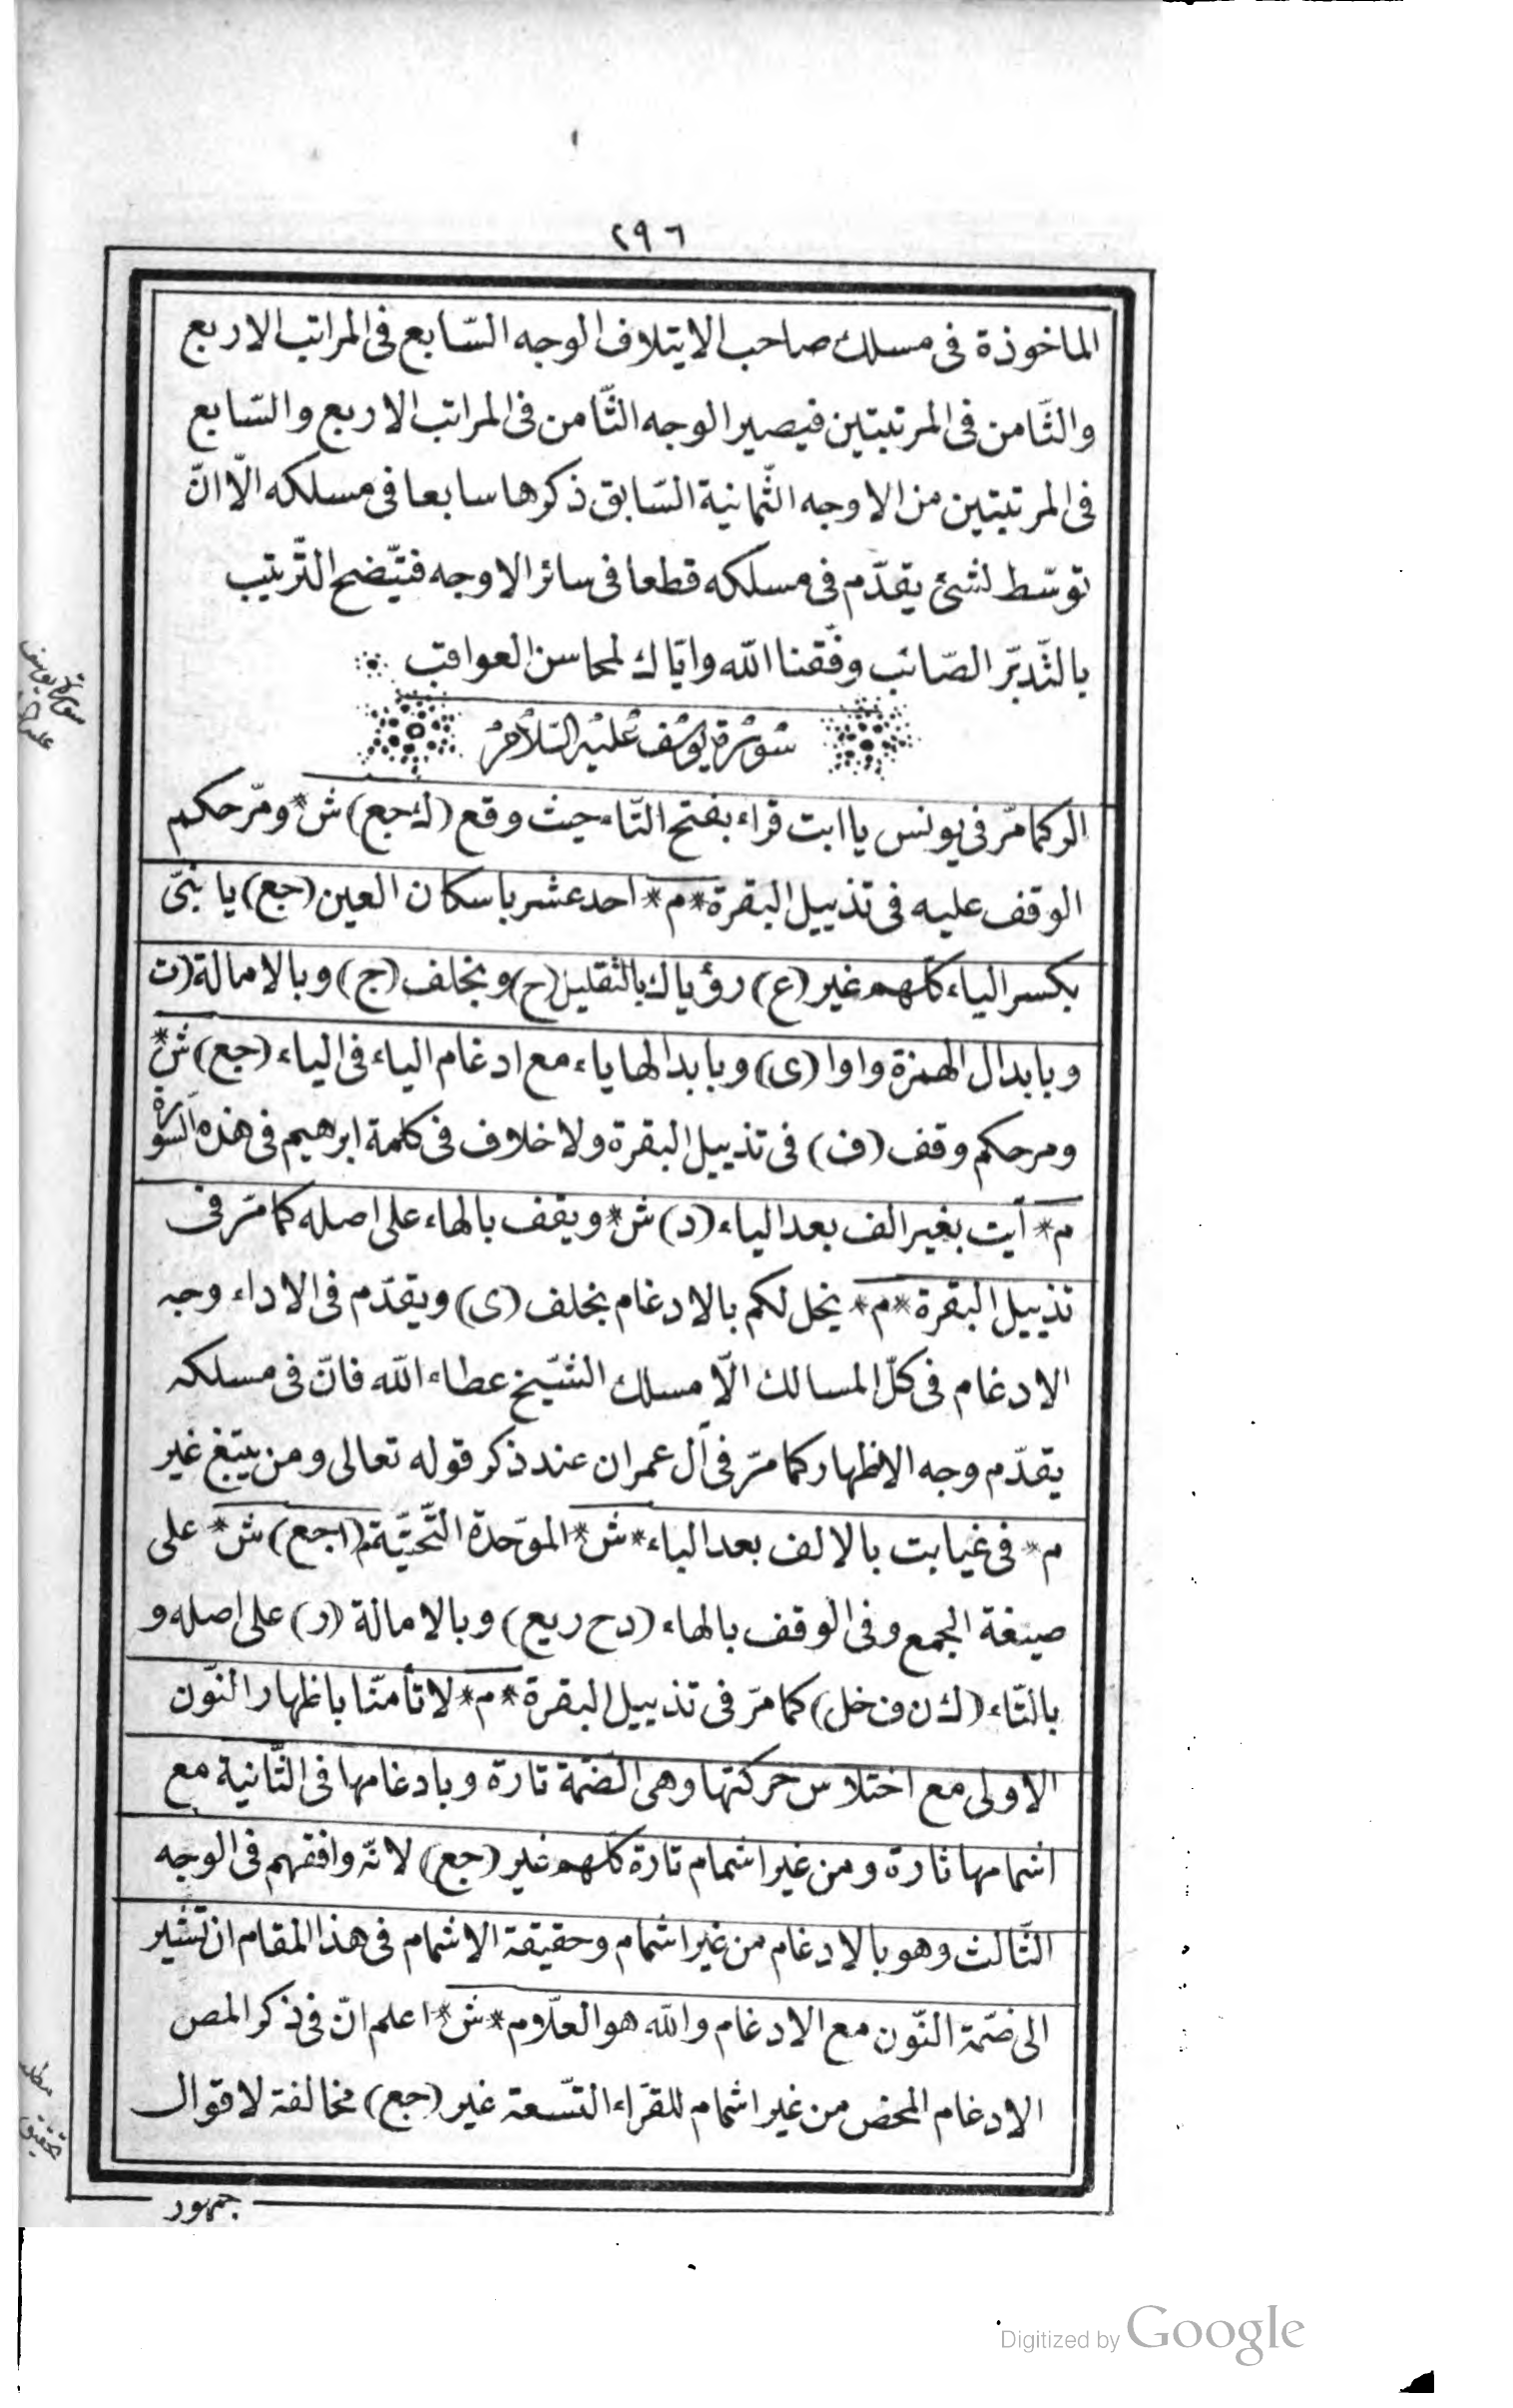 ٢٩٦
الماخوذة فى مسلك صاحب الايتلاف الوجه السّابع فى المراتب الاربع
والثّامن فى المرتبتين فيصير الوجه الثّامن فى المراتب الاربع والسّابع
فى المرتبتين من الاوجه الثّمانية السّابق ذكرها سابعا فى مسلكه الّا انّ
توسّط لشئ يقدّم فى مسلكه قطعا فى سائر الاوجه فتيّضح التّرتيب
بالتّدبّر الصّائب وفّقنا الله وايّاك لمحاسن العواقب
سورة يوسف عليه السلام
سورة يوسف
عليه السلام
الر كمامرّ فى يونس يا ابت قراء بفتح التّاء حيث وقع (ك جع) ش* ومرّ حكم
الوقف عليه فى تذييل البقرة *م* احد عشر باسكان العين (جع) يا بنىّ
بكسر الياء كلّهم غير (ع) رؤياك بالتقليل (ح) وبخلف (ج) وبالامالة (ت
وبابدال الهمزة واوا (ى) وبابدالها ياء مع ادغام الياء فى الياء (جع) ش*
ومرحكم وقف (ف) فى تذييل البقرة ولا خلاف فى كلمة ابرهيم فى هذه السورة
م* آيت بغير الف بعد الياء (د) ش* ويقف بالهاء على اصله كمامرّ فى
تذييل البقرة *م* يخل لكم بالادغام بخلف (ى) ويقدّم فى الاداء وجه
الادغام فى كلّ المسالك الّا مسلك الشّيخ عطاء الله فانّ فى مسلكه
يقدّم وجه الاظهار كمامرّ فى آل عمران عند ذكر قوله تعالى ومن يبتغ غير
م* فى غيابت بالالف بعد الباء *ش* الموّحدة التّحتيّة (اجع) ش* على
صيغة الجمع وفى الوقف بالهاء (دح ريع) وبالامالة (ر) على اصله و
بالتّاء (ك ن ف خل) كمامرّ فى تذييل البقرة *م* لا تأمنّا باظهار النّون
الاولى مع اختلاس حركتها وهى الضّمّة تارة وبادغامها فى الثّانية مع
اشمامها تارة ومن غير اشمام تارة كلّهم غير (جع) لانّه وافقهم فى الوجه
الثّالث وهو بالادغام من غير اشمام وحقيقة الاشمام فى هذا المقام ان تشير
الى ضمّة النّون مع الادغام والله هو العلّام *ش* اعلم انّ فى ذكر المص
الادغام المحض من غير اشمام للقرّاء التّسعة غير (جع) مخالفة لاقوال
مطلب
تحقيق
جمهور
Digitized by Google